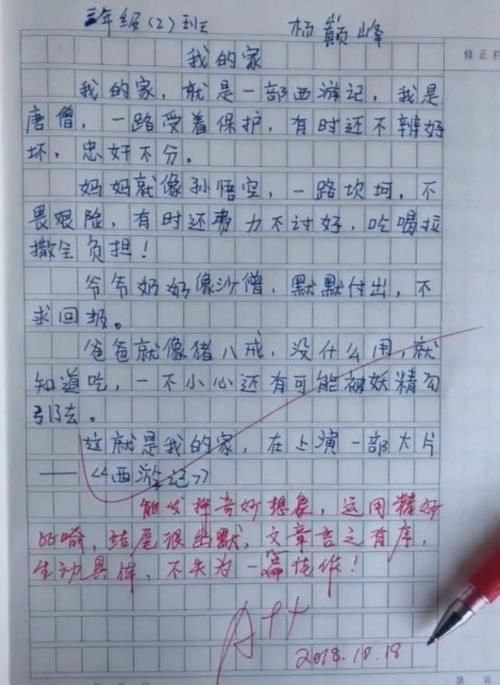 三年级(2)班 杨巅峰
修正栏
我的家
我的家，就是一部西游记，我是
唐僧，一路受着保护，有时还不辨好
坏，忠奸不分。
妈妈就像孙悟空，一路坎坷，不
畏艰险，有时还费力不讨好，吃喝拉
撒全负担！
爷爷奶奶像沙僧，默默付出，不
求回报。
爸爸就像猪八戒，没什么用，就
知道吃，一不小心还有可能被妖精勾
引去。
这就是我的家，在上演一部大片
——《西游记》
能发挥奇妙想象，运用精妙
比喻，结尾很幽默，文章言之有序，
生动具体，不失为一篇佳作！
A++
2018.10.18